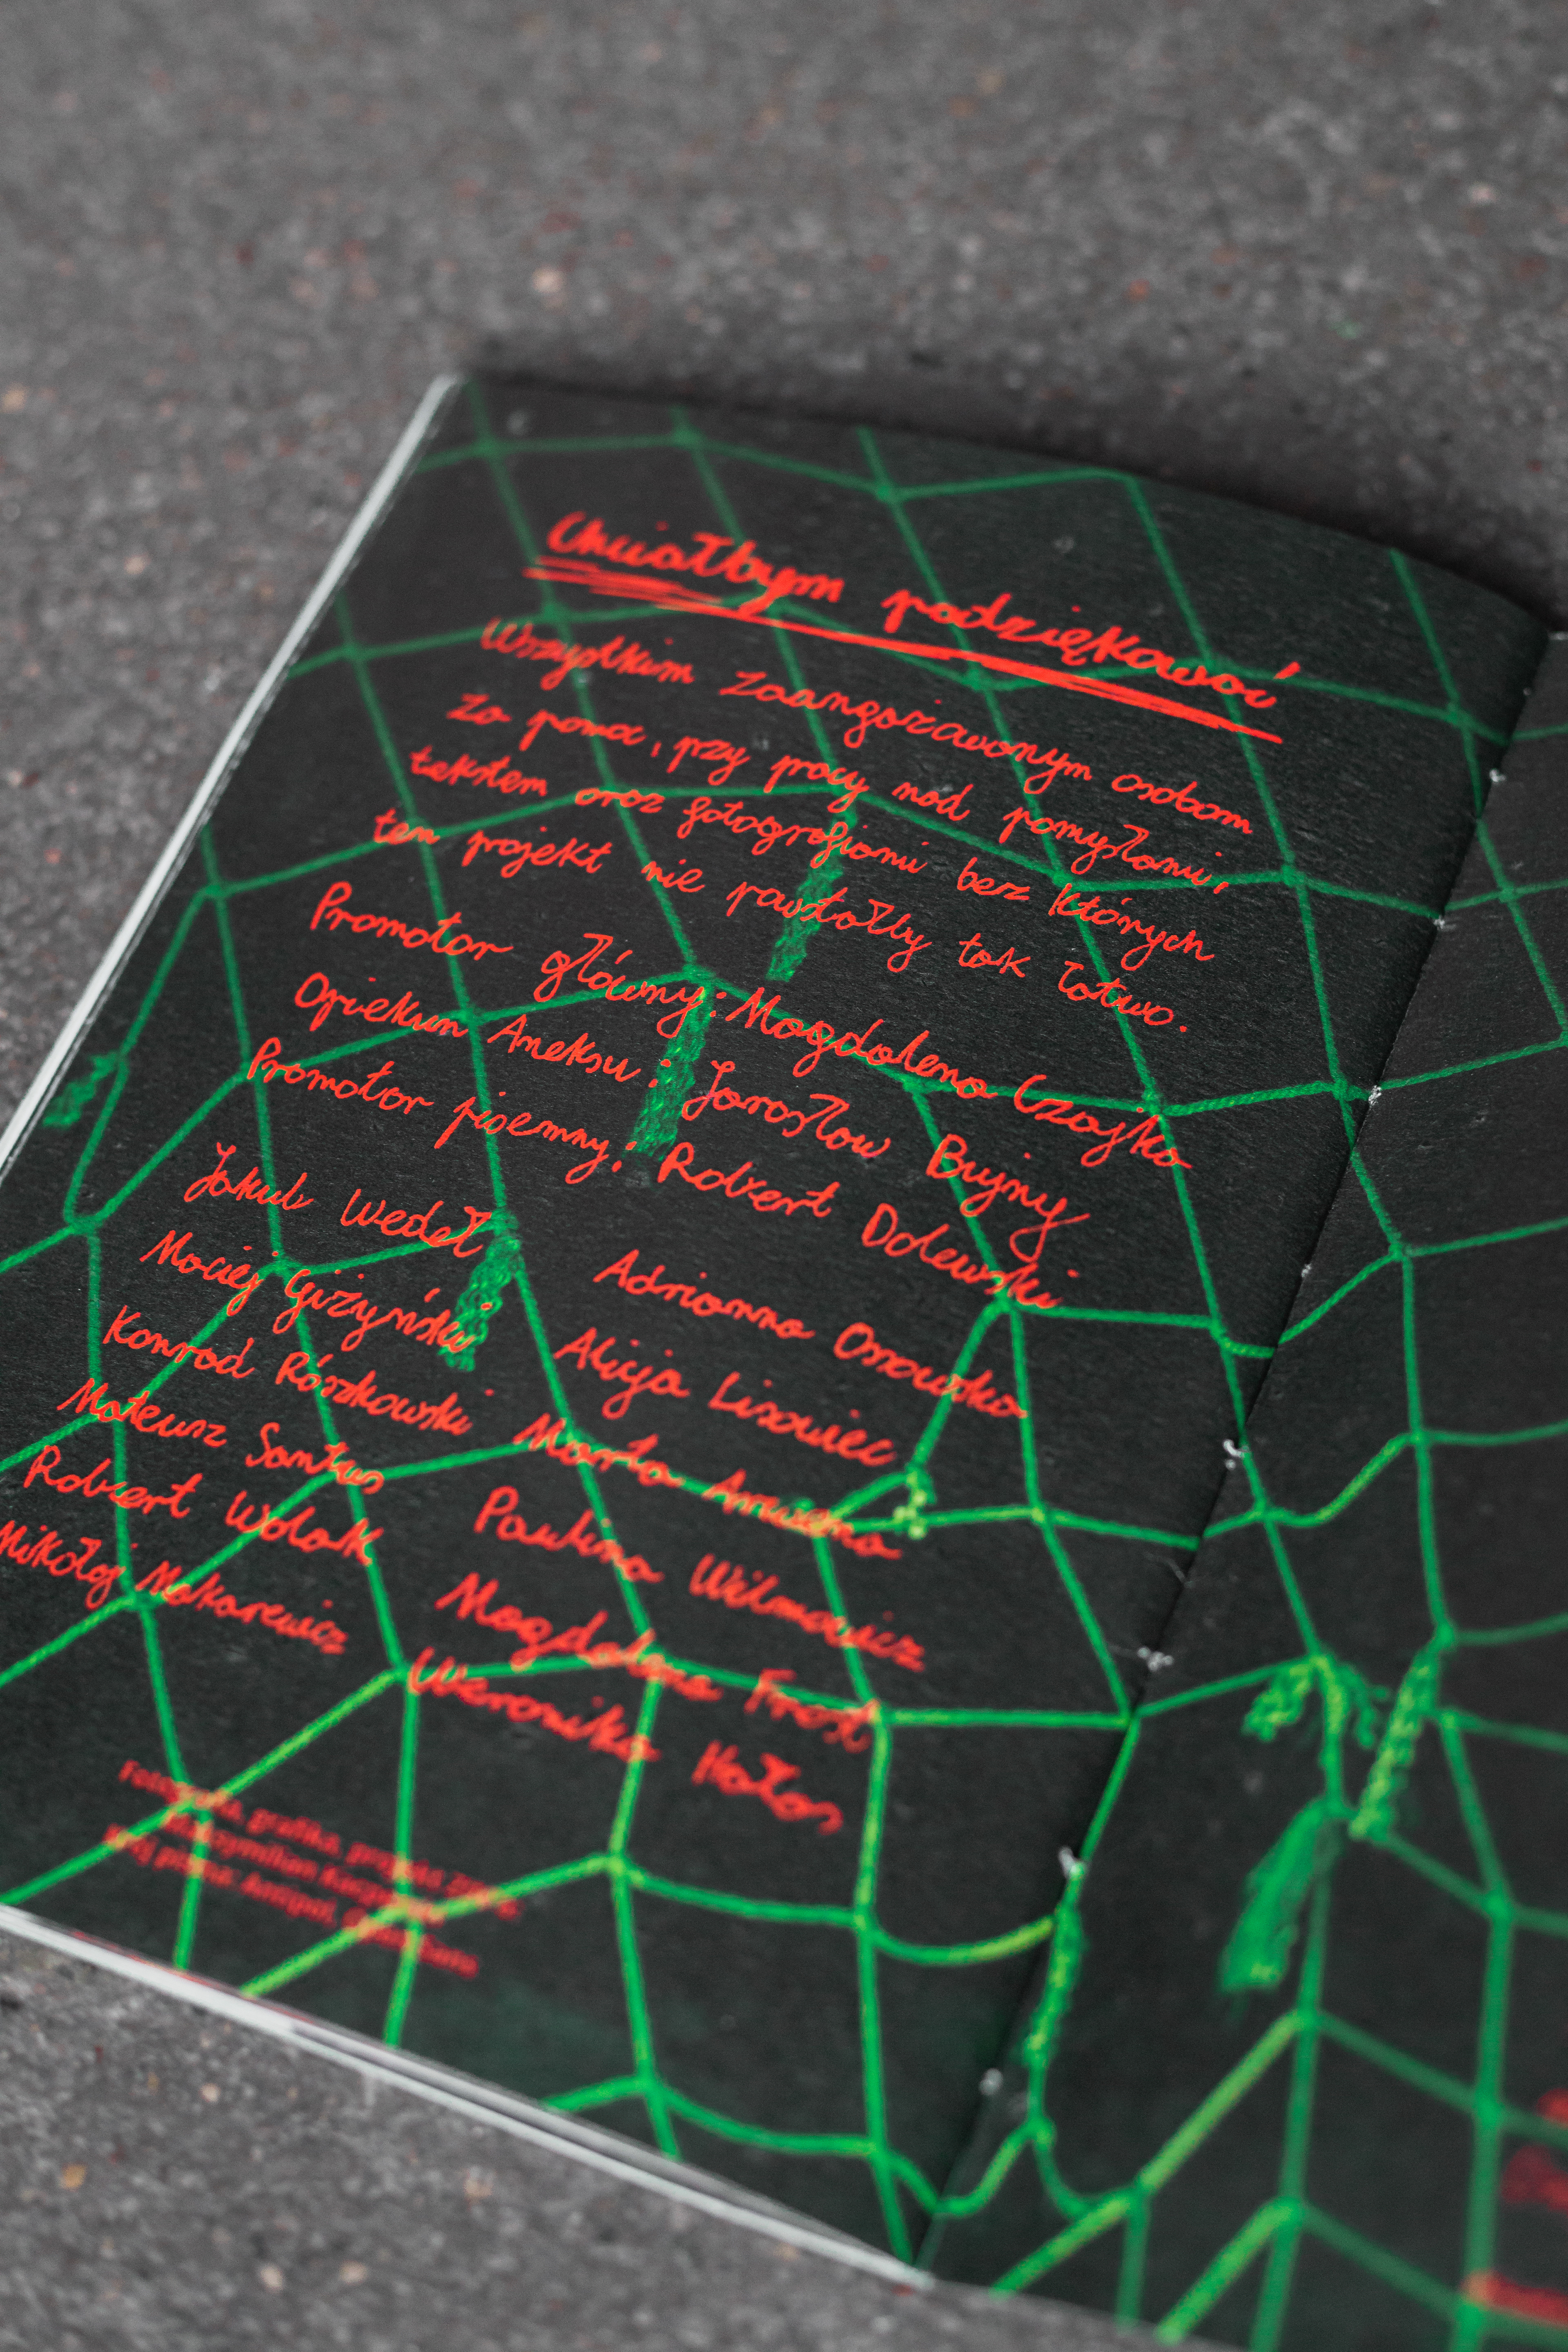 Chciałbym podziękować
Wszystkim zaangażowanym osobom
za pomoc, przy pracy nad pomysłami,
tekstem oraz fotografiami bez których
ten projekt nie powstałby tak łatwo.
Promotor główny: Magdalena Czajka
Opiekun Aneksu: Jarosław Bujny
Promotor pisemny: Robert Dolewski
Jakub Wedeł
Maciej Giżyński
Konrad Rószkowski
Mateusz Santus
Robert Wolak
Mikołaj Makarewicz
Adrianna Ossowska
Alicja Lisowiec
Marta
Paulina Wilmowicz
Magdalena Frost
Weronika Hałas
Fotografia, grafika, projekt